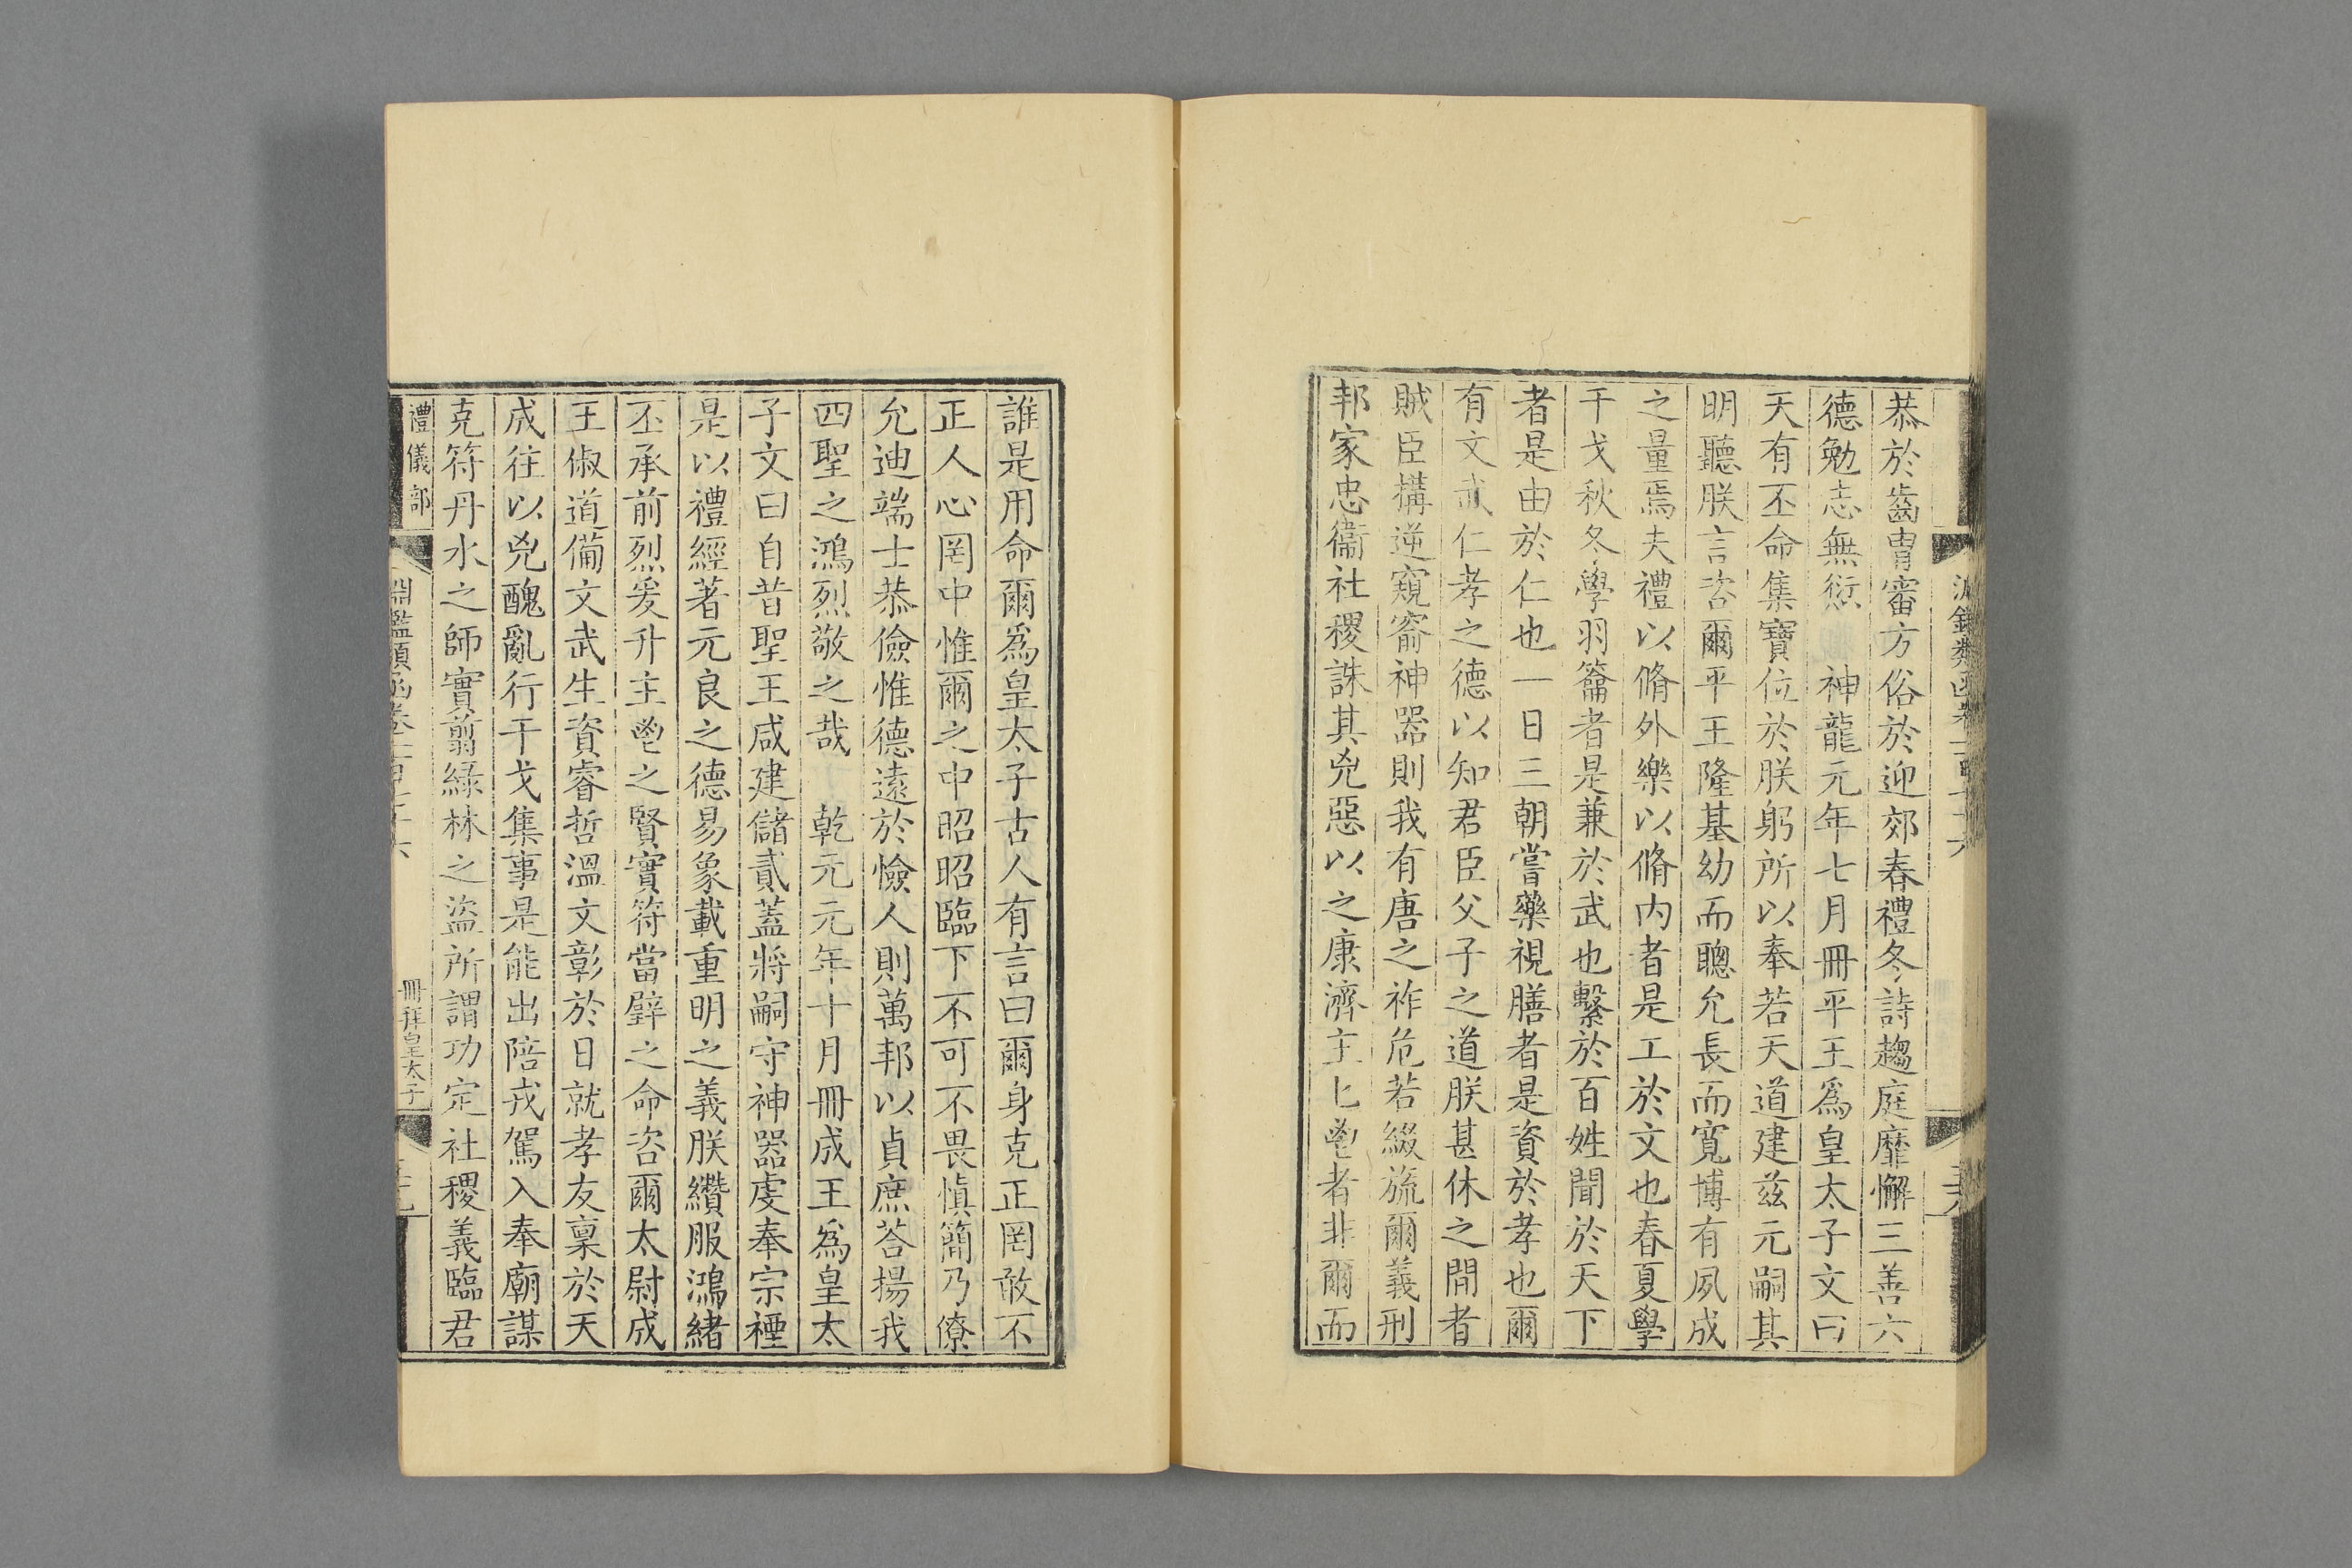 恭於齒胄審方俗於迎郊春禮冬詩趨庭靡懈三善六
德勉志無愆　神龍元年七月冊平王爲皇太子文曰
天有丕命集寶位於朕躬所以奉若天道建茲元嗣其
明聽朕言咨爾平王隆基幼而聰允長而寬博有夙成
之量焉夫禮以脩外樂以脩内者是工於文也春夏學
干戈秋冬學羽籥者是兼於武也繫於百姓聞於天下
者是由於仁也一日三朝嘗藥視膳者是資於孝也爾
有文武仁孝之德以知君臣父子之道朕甚休之間者
賊臣構逆窺窬神器則我有唐之祚危若綴旒爾義刑
邦家忠衞社稷誅其兇惡以之康濟主匕鬯者非爾而
誰是用命爾爲皇太子古人有言曰爾身克正罔敢不
正人心罔中惟爾之中昭昭臨下不可不畏愼簡乃僚
允迪端士恭儉惟德遠於憸人則萬邦以貞庶荅揚我
四聖之鴻烈敬之哉　乾元元年十月冊成王爲皇太
子文曰自昔聖王咸建儲貳蓋將嗣守神器虔奉宗禋
是以禮經著元良之德易象載重明之義朕纘服鴻緒
丕承前烈爰升主鬯之賢實符當璧之命咨爾太尉成
王俶道備文武生資睿哲溫文彰於日就孝友稟於天
成往以兇醜亂行干戈集事是能出陪戎駕入奉廟謀
克符丹水之師實翦綠林之盜所謂功定社稷義臨君
禮儀部
淵鑑類函卷一百七十六
冊拜皇太子